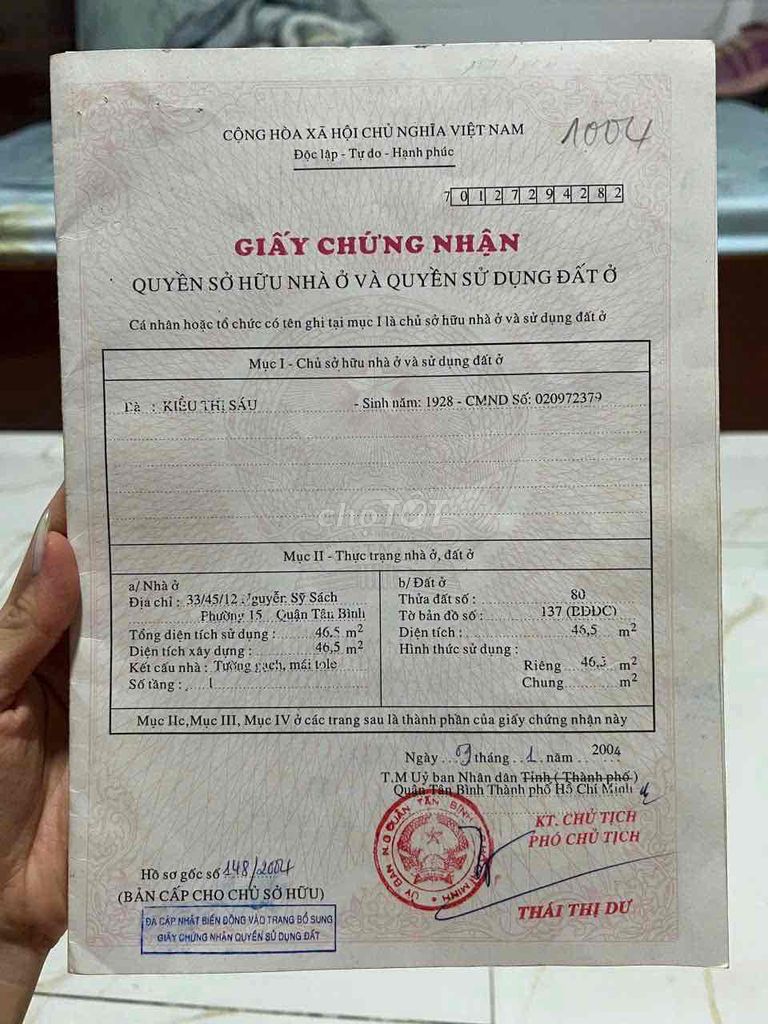 1004
CỘNG HÒA XÃ HỘI CHỦ NGHĨA VIỆT NAM
Độc lập - Tự do - Hạnh phúc
70127294282
GIẤY CHỨNG NHẬN
QUYỀN SỞ HỮU NHÀ Ở VÀ QUYỀN SỬ DỤNG ĐẤT Ở
Cá nhân hoặc tổ chức có tên ghi tại mục I là chủ sở hữu nhà ở và sử dụng đất ở
Mục I - Chủ sở hữu nhà ở và sử dụng đất ở
Bà : KIỀU THỊ SÁU - Sinh năm: 1928 - CMND Số: 020972379
choTỐT
Mục II - Thực trạng nhà ở, đất ở
a/ Nhà ở
Địa chỉ : 33/45/12 Nguyễn Sỹ Sách
Phường 15 Quận Tân Bình
Tổng diện tích sử dụng : 46,5 m²
Diện tích xây dựng : 46,5 m²
Kết cấu nhà : Tường gạch, mái tole
Số tầng : 1
b/ Đất ở
Thửa đất số : 80
Tờ bản đồ số : 137 (BĐĐC)
Diện tích : 46,5 m²
Hình thức sử dụng :
Riêng 46,5 m²
Chung m²
Mục IIc,Mục III, Mục IV ở các trang sau là thành phần của giấy chứng nhận này
Ngày 9 tháng 1 năm 2004
T.M Uỷ ban Nhân dân Tỉnh ( Thành phố )
Quận Tân Bình Thành phố Hồ Chí Minh
KT. CHỦ TỊCH
PHÓ CHỦ TỊCH
ỦY BAN N.D QUẬN TÂN BÌNH
THÁI THỊ DƯ
Hồ sơ gốc số 148/2004
(BẢN CẤP CHO CHỦ SỞ HỮU)
ĐÃ CẬP NHẬT BIẾN ĐỘNG VÀO TRANG BỔ SUNG
GIẤY CHỨNG NHẬN QUYỀN SỬ DỤNG ĐẤT